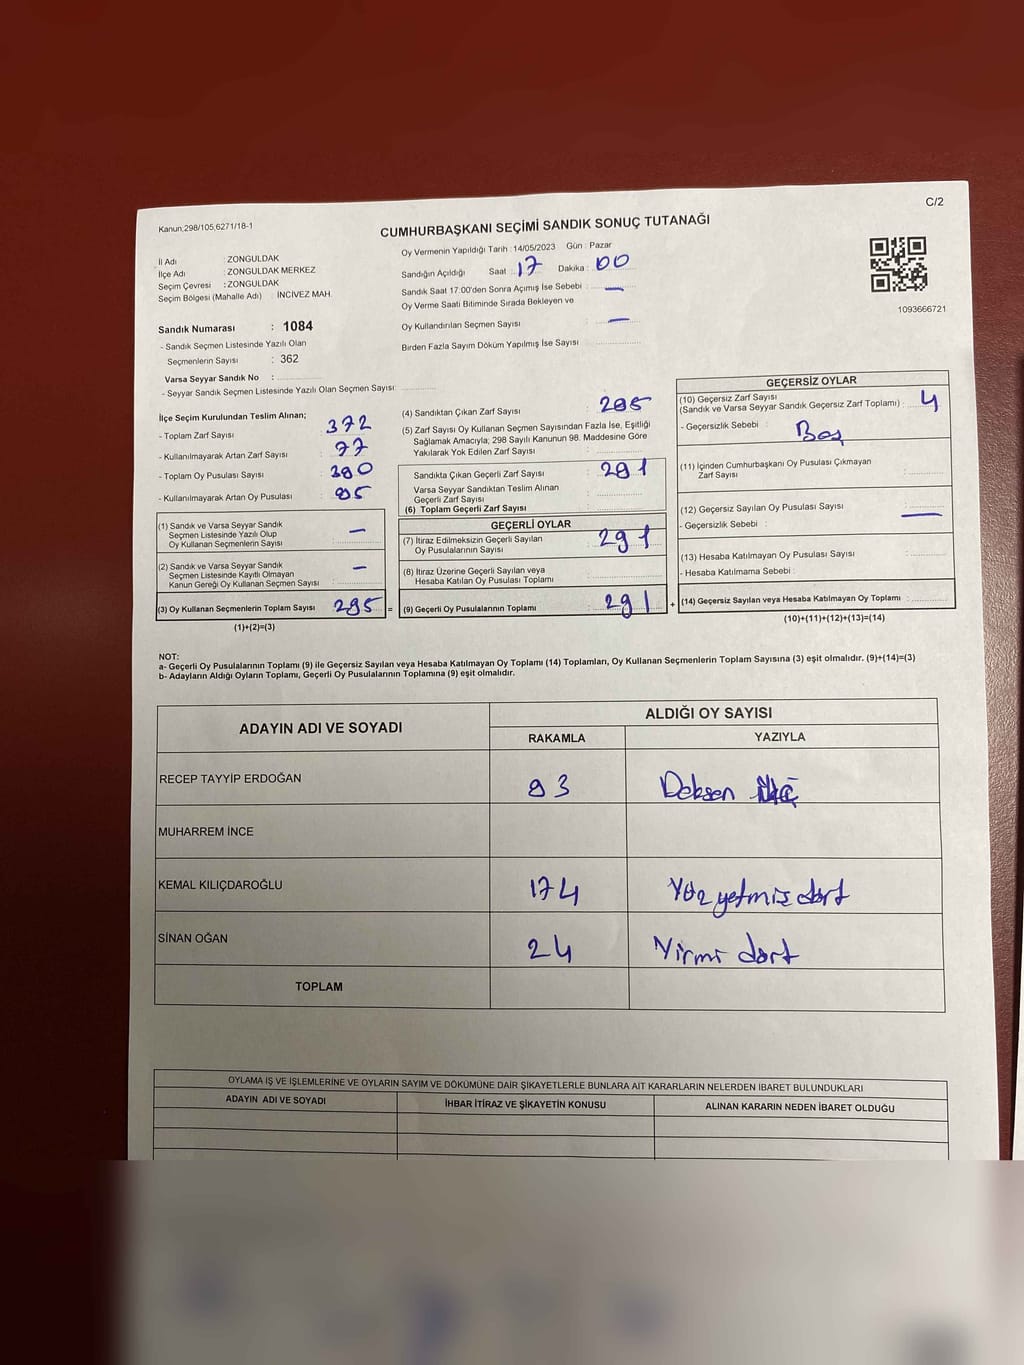 C/2
Kanun;298/105,6271/18-1
CUMHURBAŞKANI SEÇİMİ SANDIK SONUÇ TUTANAĞI
İl Adı : ZONGULDAK
İlçe Adı : ZONGULDAK MERKEZ
Seçim Çevresi : ZONGULDAK
Seçim Bölgesi (Mahalle Adı) : İNCİVEZ MAH.
Oy Vermenin Yapıldığı Tarih : 14/05/2023 Gün : Pazar
Sandığın Açıldığı Saat : 17 Dakika : 00
Sandık Saat 17:00'den Sonra Açımış İse Sebebi : —
Oy Verme Saati Bitiminde Sırada Bekleyen ve
Oy Kullandırılan Seçmen Sayısı : —
Birden Fazla Sayım Döküm Yapılmış İse Sayısı :
1093666721
Sandık Numarası : 1084
- Sandık Seçmen Listesinde Yazılı Olan
Seçmenlerin Sayısı : 362
Varsa Seyyar Sandık No :
- Seyyar Sandık Seçmen Listesinde Yazılı Olan Seçmen Sayısı:
İlçe Seçim Kurulundan Teslim Alınan;
- Toplam Zarf Sayısı : 372
- Kullanılmayarak Artan Zarf Sayısı : 77
- Toplam Oy Pusulası Sayısı : 390
- Kullanılmayarak Artan Oy Pusulası : 95
(1) Sandık ve Varsa Seyyar Sandık
Seçmen Listesinde Yazılı Olup
Oy Kullanan Seçmenlerin Sayısı : —
(2) Sandık ve Varsa Seyyar Sandık
Seçmen Listesinde Kayıtlı Olmayan
Kanun Gereği Oy Kullanan Seçmen Sayısı : —
(3) Oy Kullanan Seçmenlerin Toplam Sayısı : 295 =
(1)+(2)=(3)
(4) Sandıktan Çıkan Zarf Sayısı : 295
(5) Zarf Sayısı Oy Kullanan Seçmen Sayısından Fazla İse, Eşitliği
Sağlamak Amacıyla; 298 Sayılı Kanunun 98. Maddesine Göre
Yakılarak Yok Edilen Zarf Sayısı :
Sandıkta Çıkan Geçerli Zarf Sayısı : 291
Varsa Seyyar Sandıktan Teslim Alınan
Geçerli Zarf Sayısı :
(6) Toplam Geçerli Zarf Sayısı :
GEÇERLİ OYLAR
(7) İtiraz Edilmeksizin Geçerli Sayılan
Oy Pusulalarının Sayısı : 291
(8) İtiraz Üzerine Geçerli Sayılan veya
Hesaba Katılan Oy Pusulası Toplamı :
(9) Geçerli Oy Pusulalarının Toplamı : 291 +
GEÇERSİZ OYLAR
(10) Geçersiz Zarf Sayısı
(Sandık ve Varsa Seyyar Sandık Geçersiz Zarf Toplamı) : 4
- Geçersizlik Sebebi : Boş
(11) İçinden Cumhurbaşkanı Oy Pusulası Çıkmayan
Zarf Sayısı :
(12) Geçersiz Sayılan Oy Pusulası Sayısı : —
- Geçersizlik Sebebi :
(13) Hesaba Katılmayan Oy Pusulası Sayısı :
- Hesaba Katılmama Sebebi :
(14) Geçersiz Sayılan veya Hesaba Katılmayan Oy Toplamı :
(10)+(11)+(12)+(13)=(14)
NOT:
a- Geçerli Oy Pusulalarının Toplamı (9) ile Geçersiz Sayılan veya Hesaba Katılmayan Oy Toplamı (14) Toplamları, Oy Kullanan Seçmenlerin Toplam Sayısına (3) eşit olmalıdır. (9)+(14)=(3)
b- Adayların Aldığı Oyların Toplamı, Geçerli Oy Pusulalarının Toplamına (9) eşit olmalıdır.
ADAYIN ADI VE SOYADI
ALDIĞI OY SAYISI
RAKAMLA YAZIYLA
RECEP TAYYİP ERDOĞAN 93 Doksan
MUHARREM İNCE
KEMAL KILIÇDAROĞLU 174 Yüz yetmiş dört
SİNAN OĞAN 24 Yirmi dört
TOPLAM
OYLAMA İŞ VE İŞLEMLERİNE VE OYLARIN SAYIM VE DÖKÜMÜNE DAİR ŞİKAYETLERLE BUNLARA AİT KARARLARIN NELERDEN İBARET BULUNDUKLARI
ADAYIN ADI VE SOYADI İHBAR İTİRAZ VE ŞİKAYETİN KONUSU ALINAN KARARIN NEDEN İBARET OLDUĞU